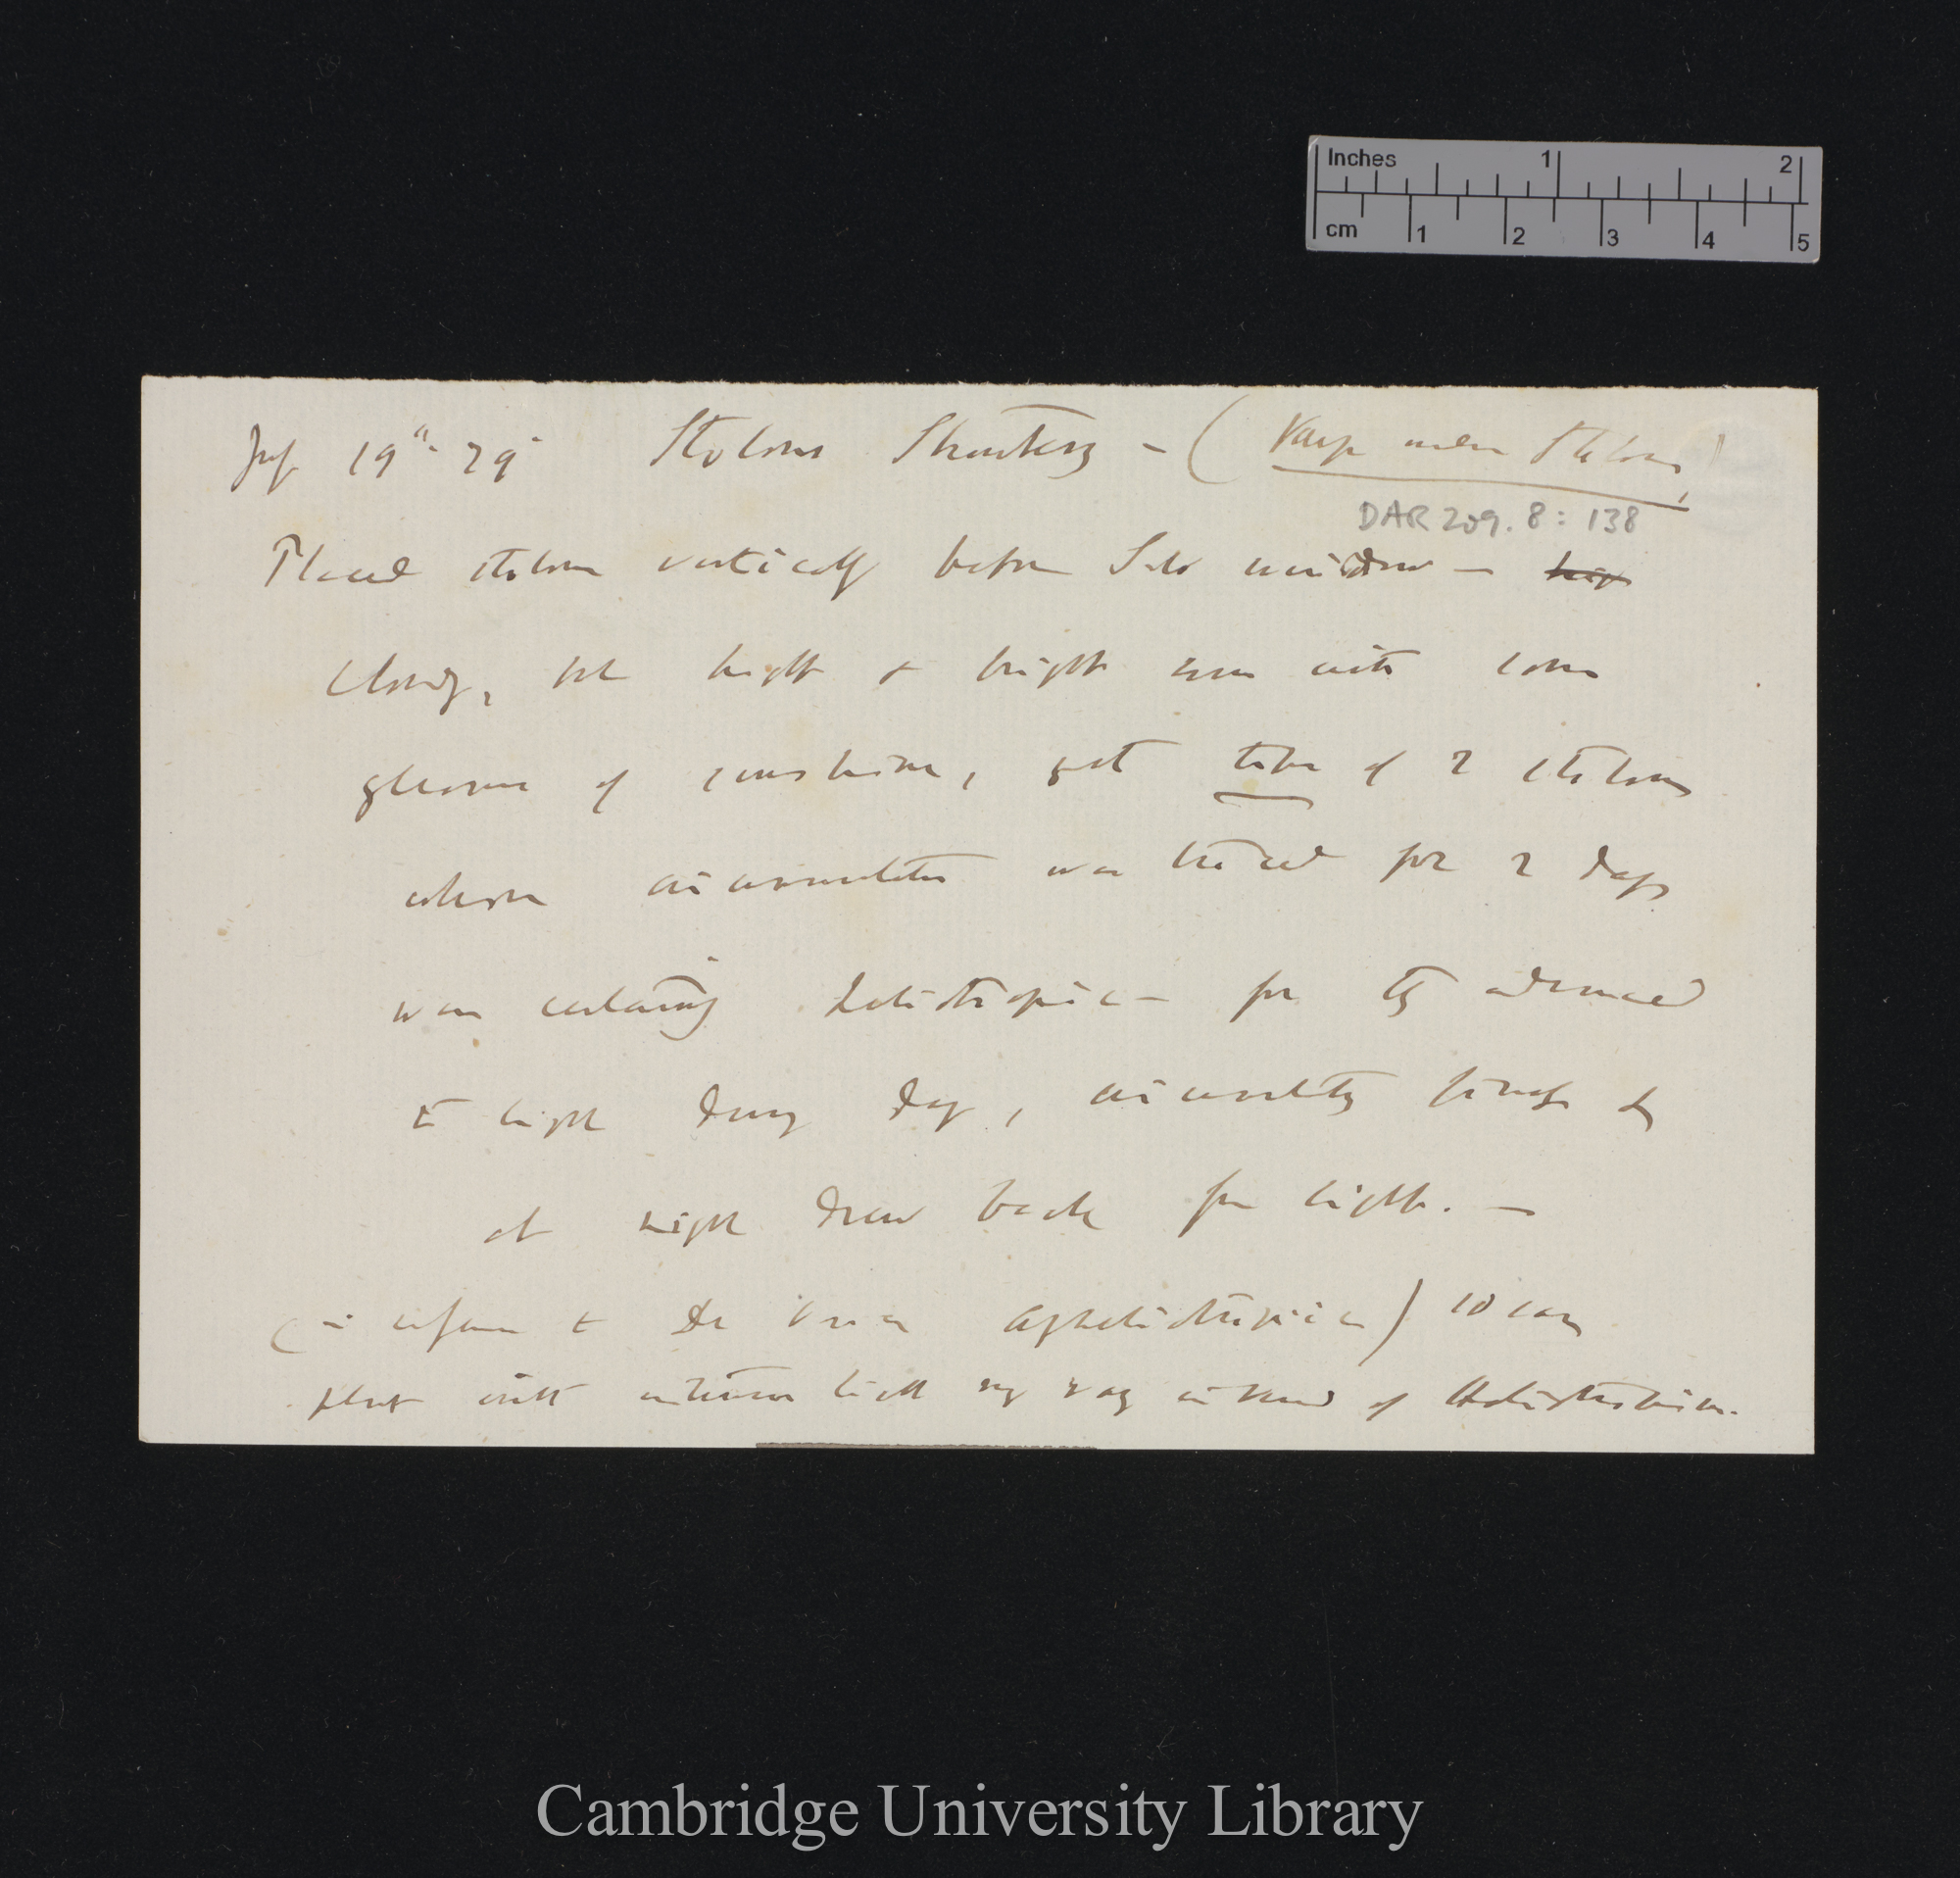 Inches 1 2
cm 1 2 3 4 5
July 19th. 79 Stolons Strawberry — (Keep under Stolons)
DAR 209.8:138
Placed stolons vertically before S.W window —
cloudy, but bright & bright sun with some
gleams of sunshine, yet tube of 2 stolons
whose circumnutation was traced for 2 days
was certainly heliotropic — for they advanced
to light during day, circumnutating &
at night drew back from light. —
( in reference to De Vries Apheliotropic )
plant with light my way instead of Heliotropism.
Cambridge University Library